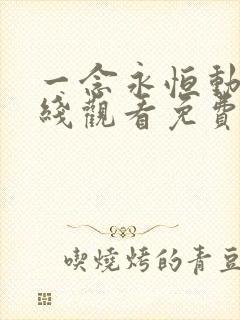 一念永恒動
綫觀看免費
喫燒烤的青豆